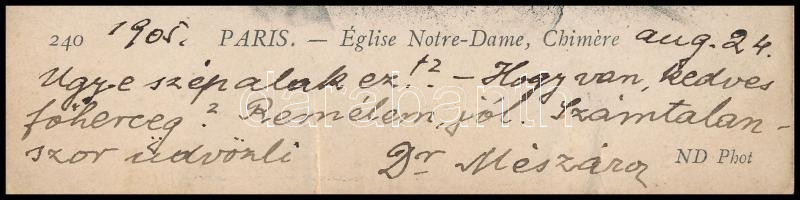 240 1905. PARIS. — Église Notre-Dame, Chimère aug. 24.
Ugy-e szép alak ez!? — Hogy van, kedves
főherceg? Remélem, jól. Számtalan-
szor üdvözli Dr Mészáros ND Phot
darabanth